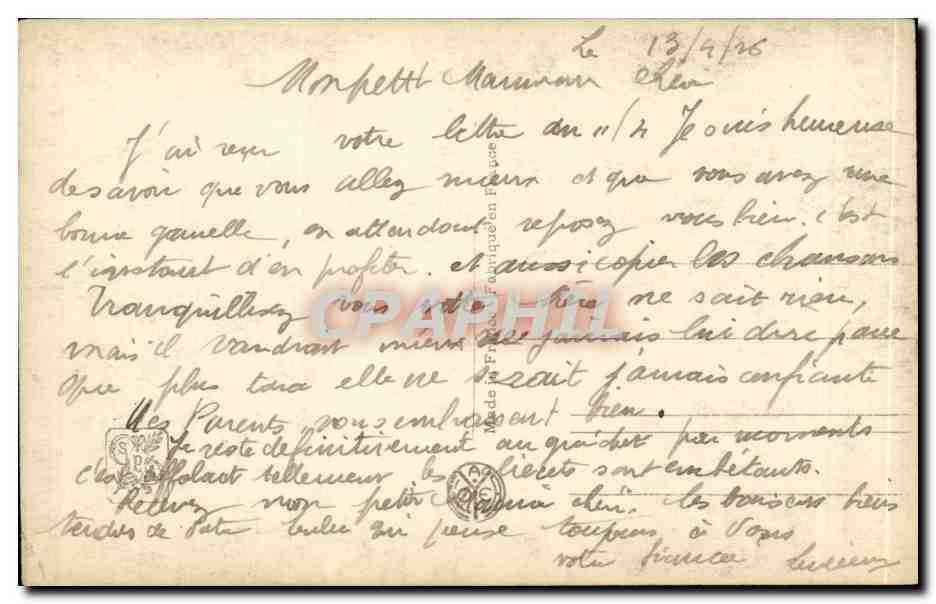 Le 13/4/26
Mon petit Maman Chéri
J'ai reçu votre lettre du 11/4 Je suis heureuse
de savoir que vous allez mieux et que vous avez une
bonne gamelle, en attendant reposez vous bien. c'est
l'instant d'en profiter. et aussi copier les chansons
Tranquillisez vous votre mère ne sait rien,
mais il vaudrait mieux ne jamais lui dire parce
que plus tard elle ne serait jamais confiante
Mes Parents vous embrassent bien.
Je reste definitivement au guichet par moments
c'est affolant tellement les clients sont embêtants.
Recevez mon petit chéri les baisers biens
tendres de votre Lulu qui pense toujours à Vous
votre fiancée Lucienne
Made in France Fabriqué en France
CPAPHIL